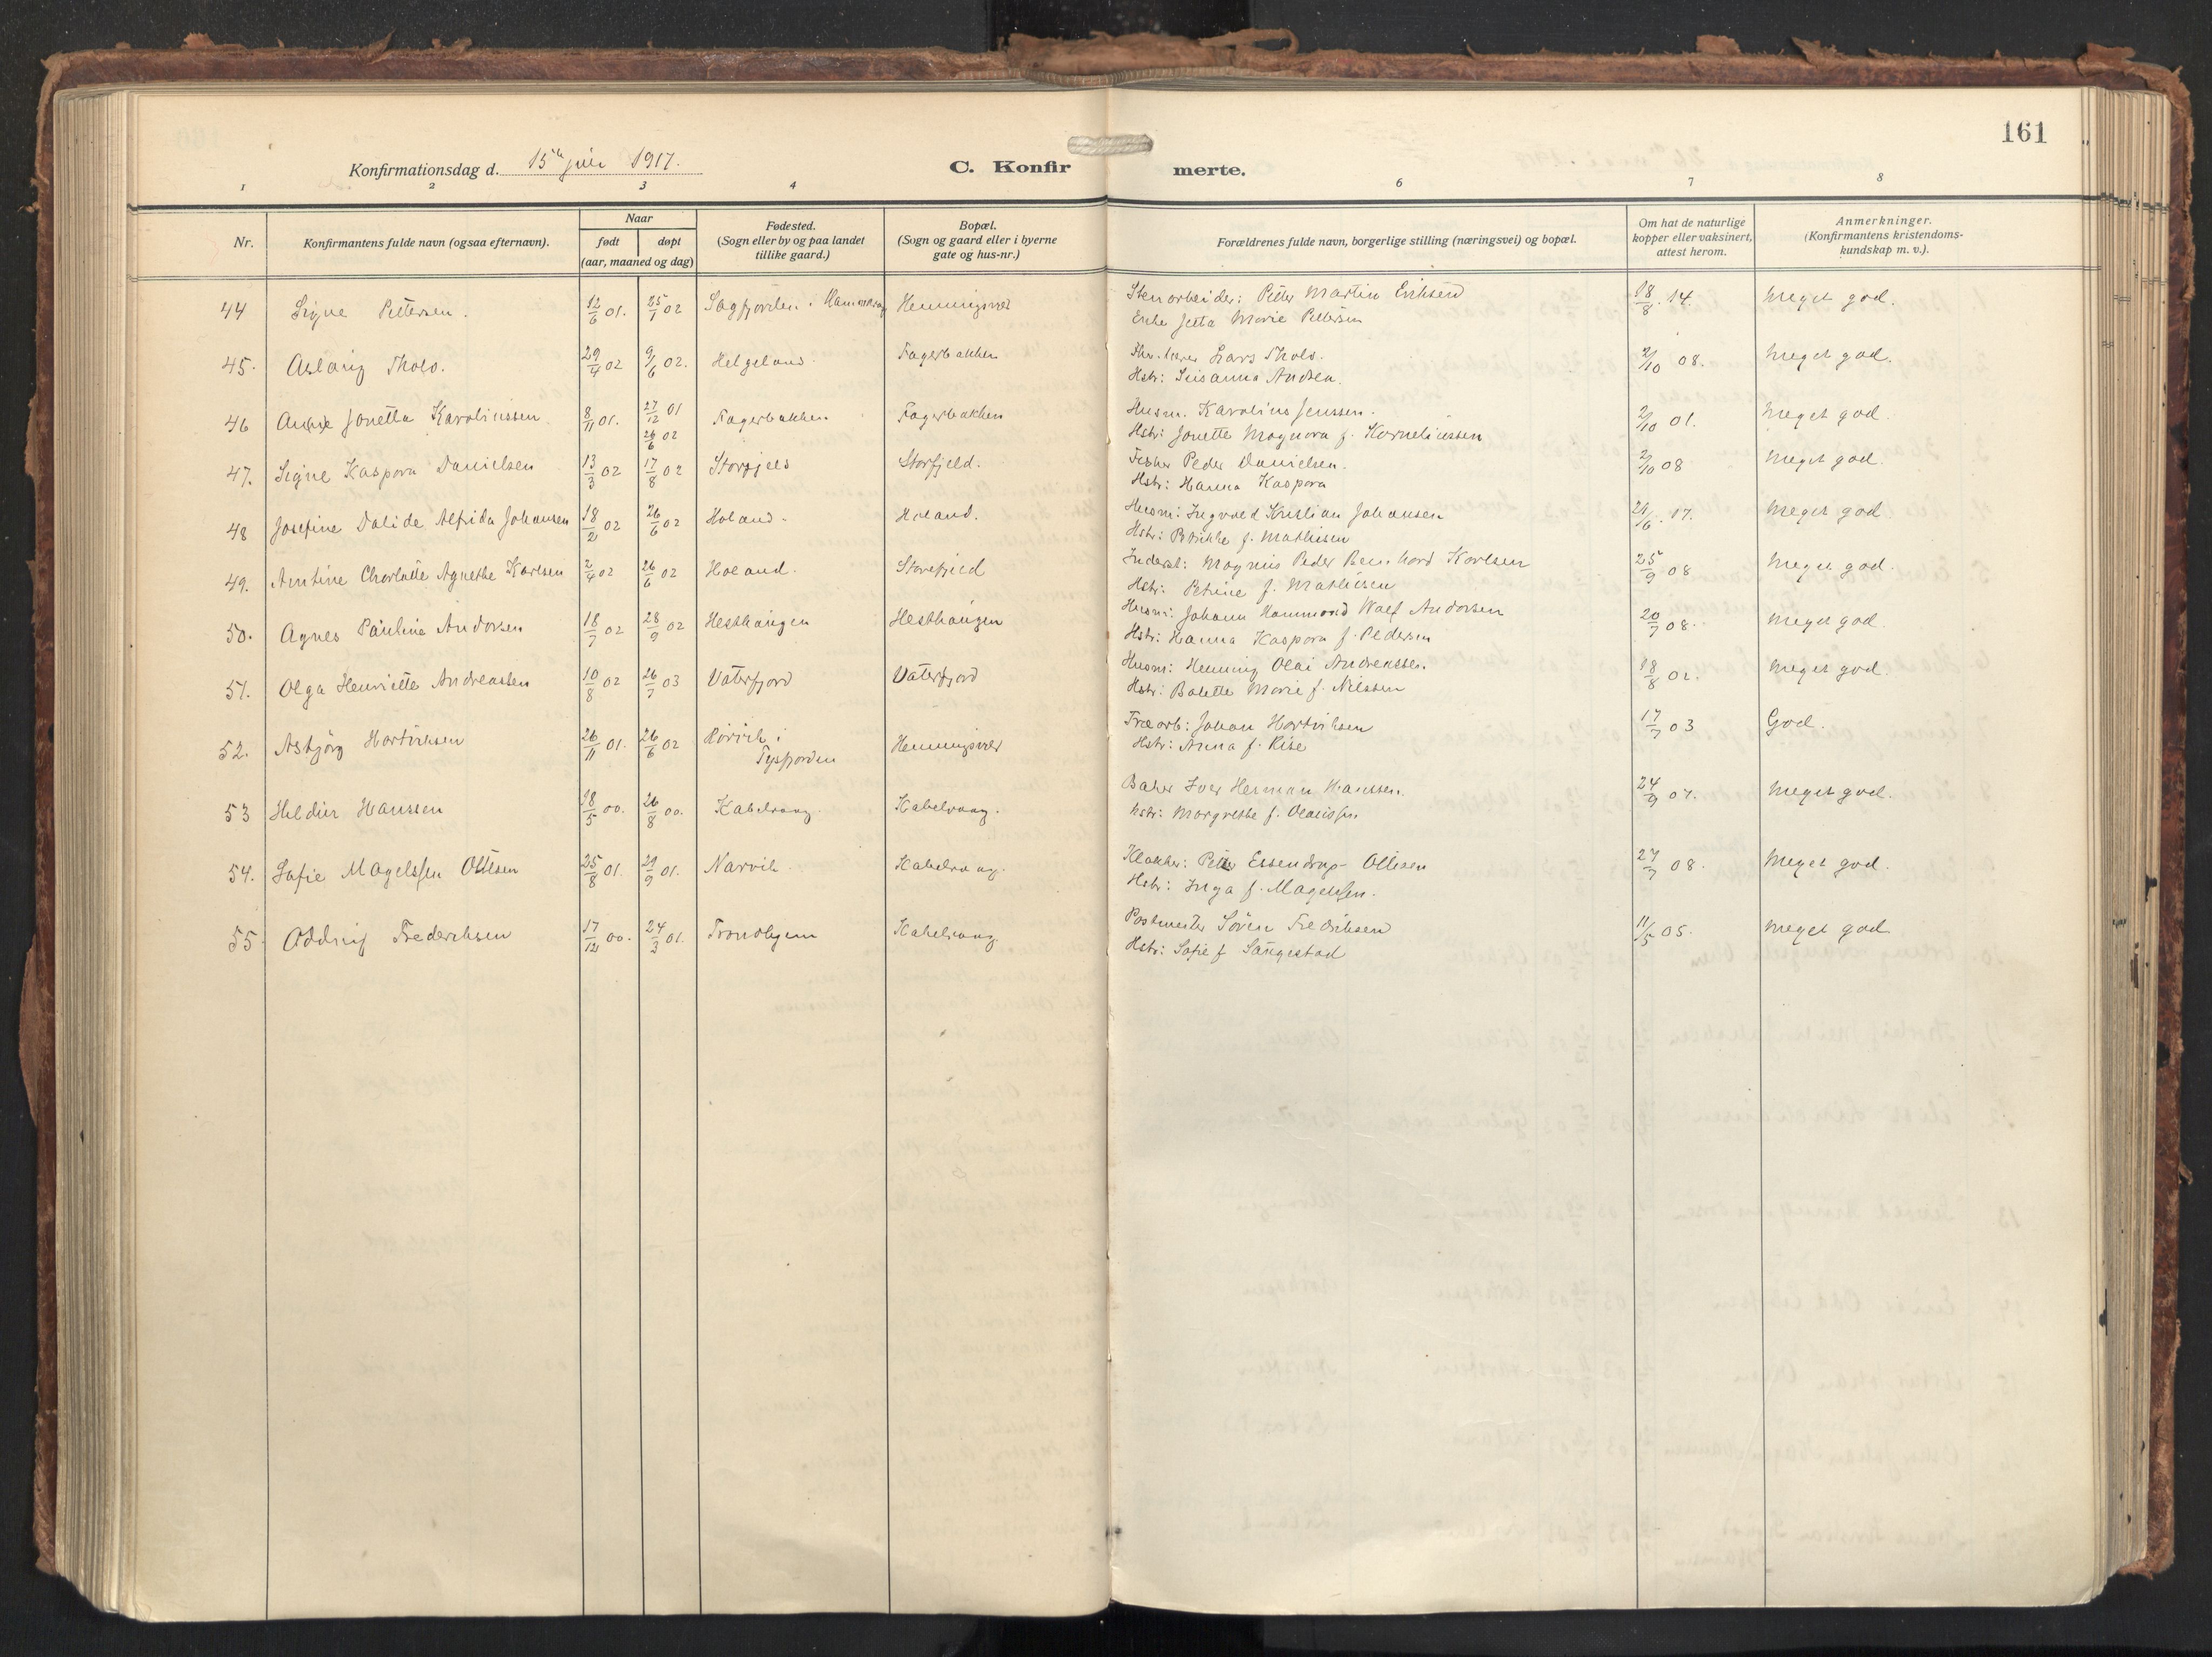 161
Konfirmationsdag d. 15de juli 1917.
C. Konfir merte.
1 2 3 4 6 7 8
Nr.
Konfirmantens fulde navn (ogsaa efternavn).
Naar
født døpt
(aar, maaned og dag)
Fødested.
(Sogn eller by og paa landet
tillike gaard.)
Bopæl.
(Sogn og gaard eller i byerne
gate og hus-nr.)
Forældrenes fulde navn, borgerlige stilling (næringsvei) og bopæl.
Om hat de naturlige
kopper eller vaksinert,
attest herom.
Anmerkninger.
(Konfirmantens kristendoms-
kundskap m. v.).
44 Signe Pettersen. 12/6 01. 25/1 02 Sagfjorden i Hammerøy Henningsvær Stenarbeider: Peter Martin Eriksen 18/8. 14. Meget god.
Enke Jetta Marie Pettersen
45. Aslaug Tholo. 29/4 02 9/6 02. Helgeland Fagerbakken Lars Tholo. 2/10 08. Meget god.
Hstr: Susanna Andrea.
46 Anne Jonetta Karolinssen 8/11 01. 27/12 01 Fagerbakken Fagerbakken Husm. Karolius Jenssen. 2/10 01. Meget god.
26/6 02
Hstr: Jonette Magnora f. Korneliussen
47. Signe Kaspora Danielsen 13/3 02 17/8 02 Storfjeld Storfjeld. Fisker Peder Danielsen. 2/10 08 Meget god.
Hstr: Hanna Kaspora
48 Josefine Dalide Alfrida Johansen 18/2 02 26/6 02 Holand. Holand. Husm: Ingvald Kristian Johansen 21/6. 17. Meget god
Hstr: Brikke f. Mathisen
49. Amtine Charlotte Agnethe Karlsen 2/4 02 26/6 02 Holand. Storfjeld Inderst: Magnus Peder Bernhard Karlsen 25/9 08 Meget god.
Hstr: Petrine f. Mathisen
50. Agnes Pauline Andorsen 18/7 02 28/9 02 Hesthaugen Hesthaugen Husm: Johann Hammond Walf Andorsen 20/7 08. Meget god.
Hstr: Hanna Kaspora f. Pedersen
51. Olga Henriette Andreassen 10/8 02 26/7 03 Vaterfjord Vaterfjord Husm: Henning Olai Andreassen. 18/8 02. Meget god.
Hstr: Balette Marie f. Nilssen
52. Asbjørg Hartviksen 26/11 01. 26/6 02 Kørsvik i Henningsvær Træarb: Johan Hartviksen 17/7 03 God.
Tysfjorden
Hstr: Anna f. Rise
53 Heldur Hanssen 18/5 00. 26/8 00. Kabelvaag. Kabelvaag. Baker Iver Herman Hanssen. 24/9 07. Meget god.
Hstr: Margrethe f. Olaussen
54. Sofie Magelssen Ottesen 25/8 01. 29/9 01. Narvik. Kabelvaag. Klokker: Peter Essendrop Ottesen 27/7 08. Meget god.
Hstr: Inga f. Magelssen.
55 Oddny Frederiksen 17/12 00. 24/3 01. Trondhjem Kabelvaag Postmester Søren Fredriksen 11/5 05. Meget god
Hstr: Sofie f Saugestad